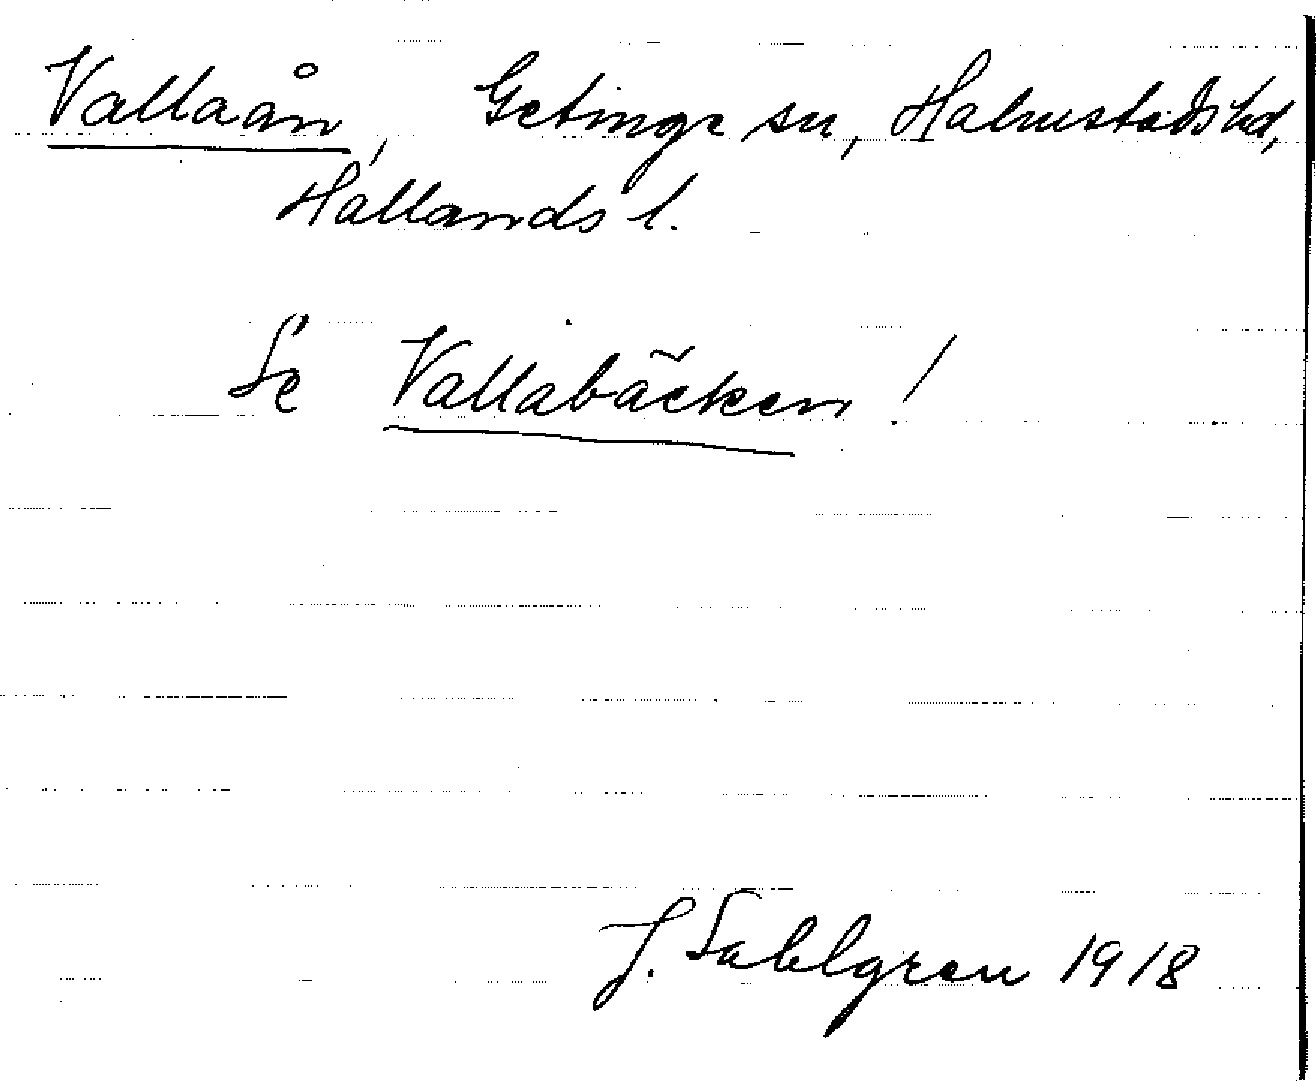 Vallaån, Getinge sn, Halmstads hd,
Hallands l.
Se Vallabäcken!
J. Sahlgren 1918